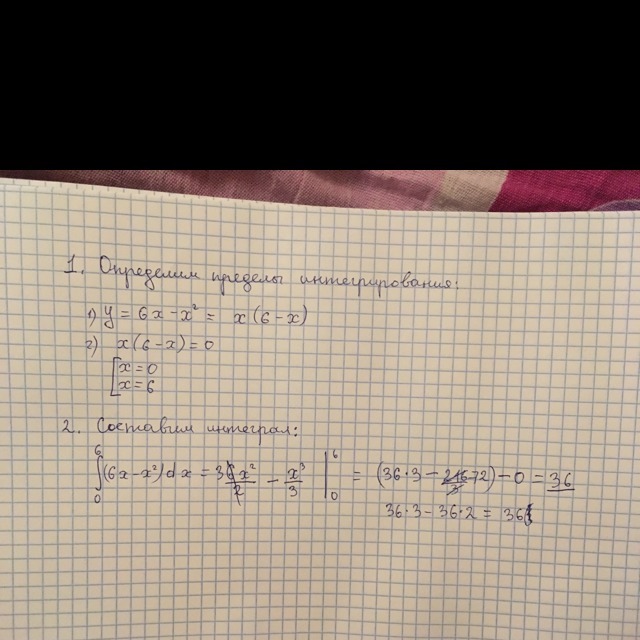 1. Определим пределы интегрирования:
1) y = 6x - x² = x(6 - x)
2) x(6 - x) = 0
[x = 0
x = 6
2. Составим интеграл:
∫₀⁶(6x - x²)dx = 3 6x²/2 - x³/3 |₀⁶ = (36·3 - 216/3 72) - 0 = 36
36·3 - 36·2 = 36